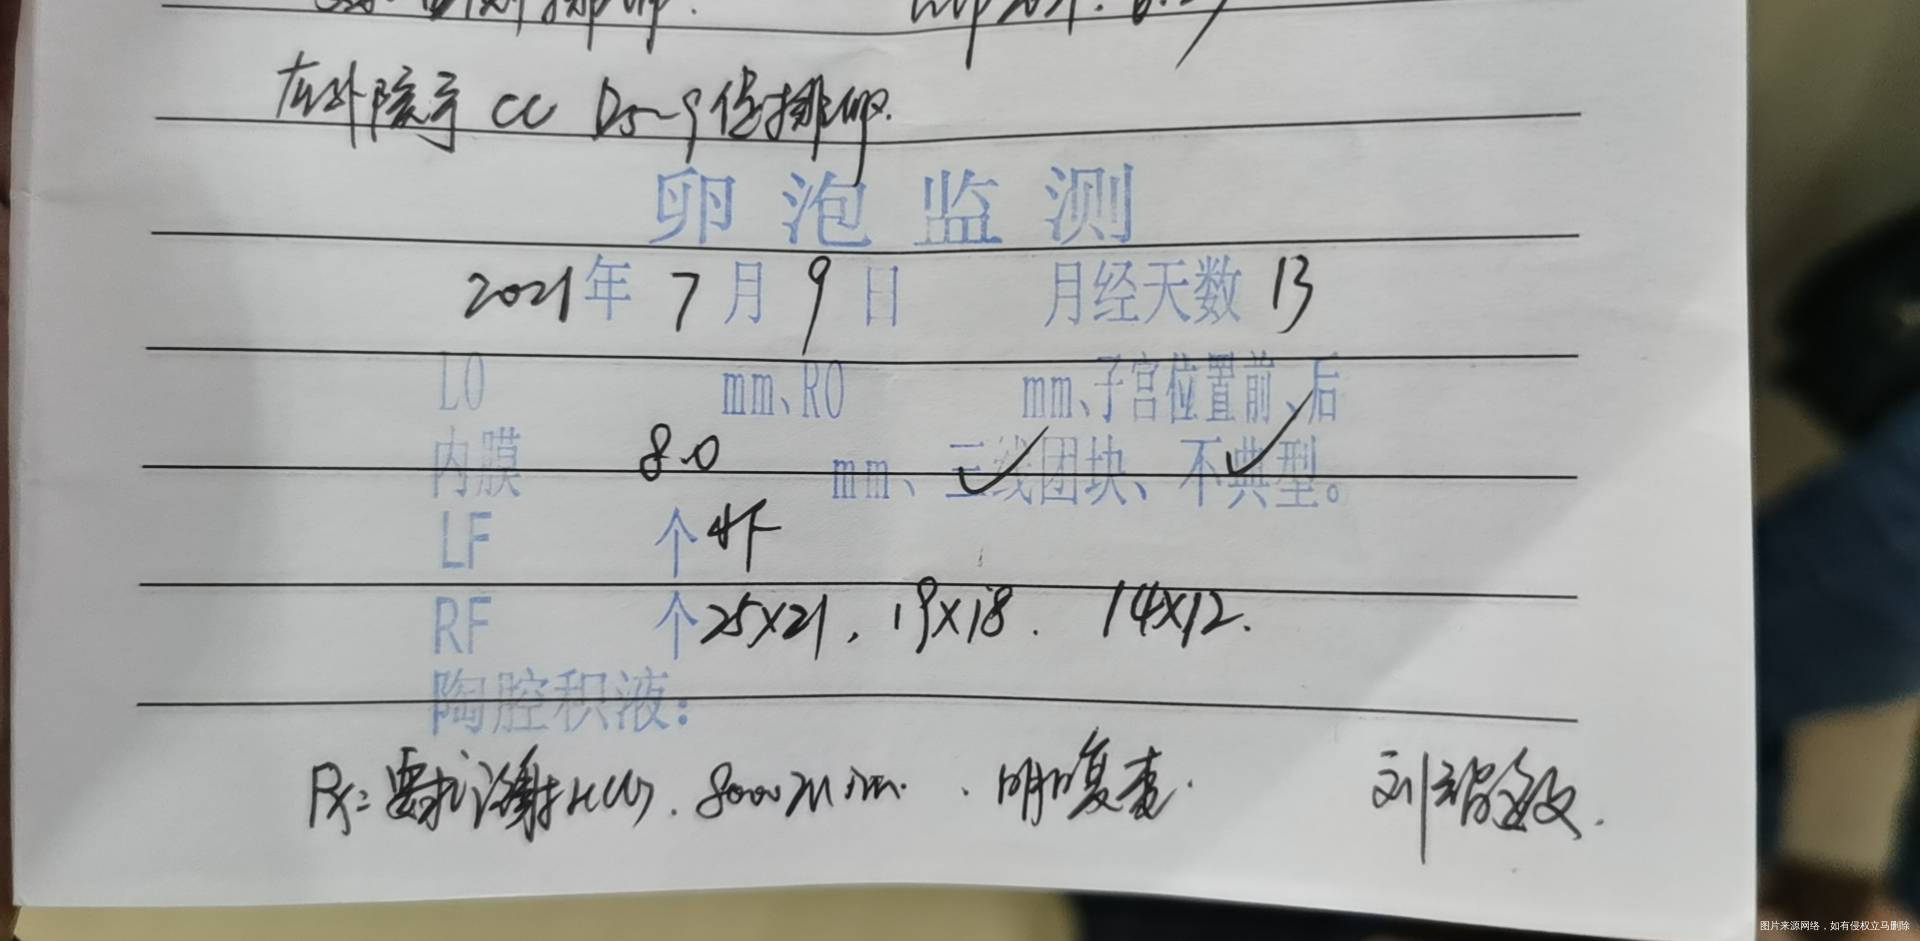 监测排卵. LMP 2021. 6.27
在外院予 CC D5-9 促排卵.
卵泡监测
2021年 7月 9日 月经天数 13
LO mm、RO mm、子宫位置前、后
内膜 8.0 mm、三线团块、不典型。
LF 个
RF 个 25x21, 19x18. 14x12.
陶腔积液:
Rx: 要求注射HCG. 8000u im. 明日复查. 刘
图片来源网络，如有侵权立马删除